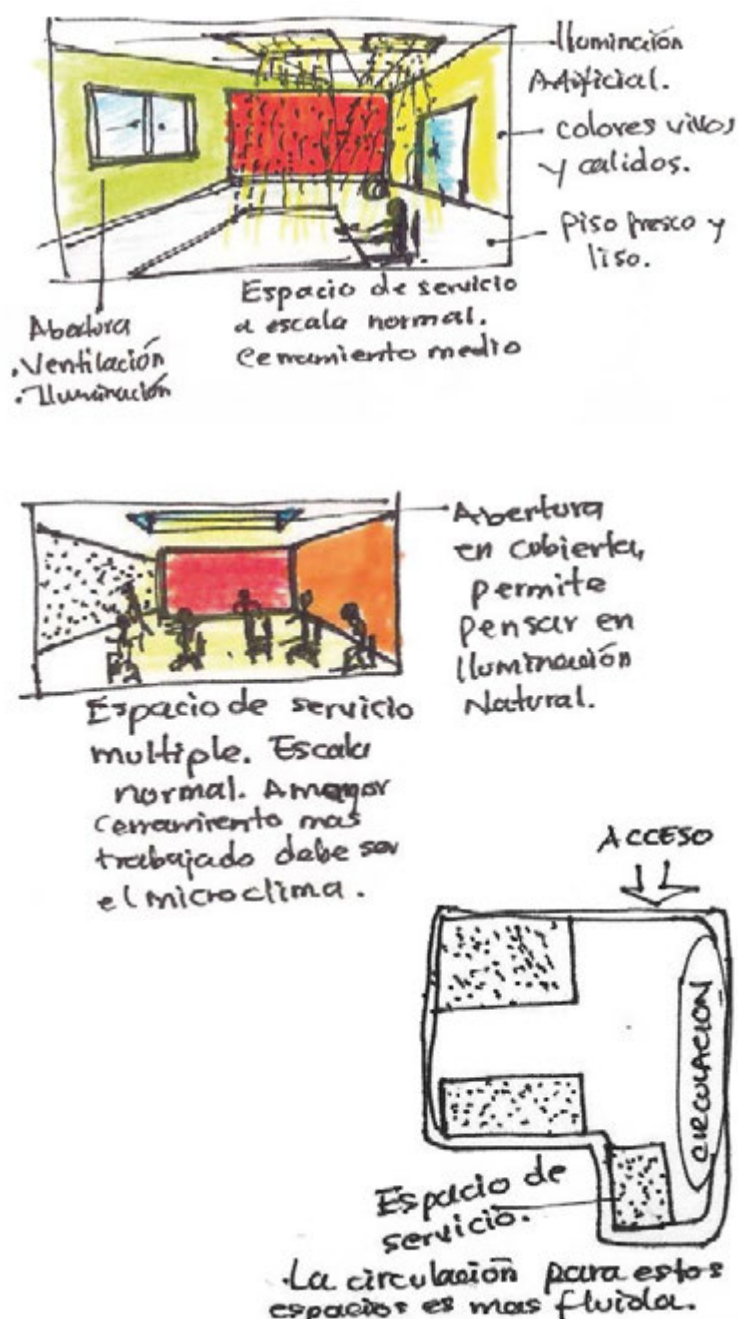 Iluminación
Artificial.
colores vivos
y calidos.
Piso fresco y
liso.
Espacio de servicio
a escala normal.
Cerramiento medio
Abertura
.Ventilación
.Iluminación
Abertura
en cubierta,
permite
pensar en
Iluminación
Natural.
Espacio de servicio
multiple. Escala
normal. A mayor
cerramiento mas
trabajado debe ser
el microclima.
ACCESO
CIRCULACION
Espacio de
servicio.
.La circulación para estos
espacios es mas fluida.